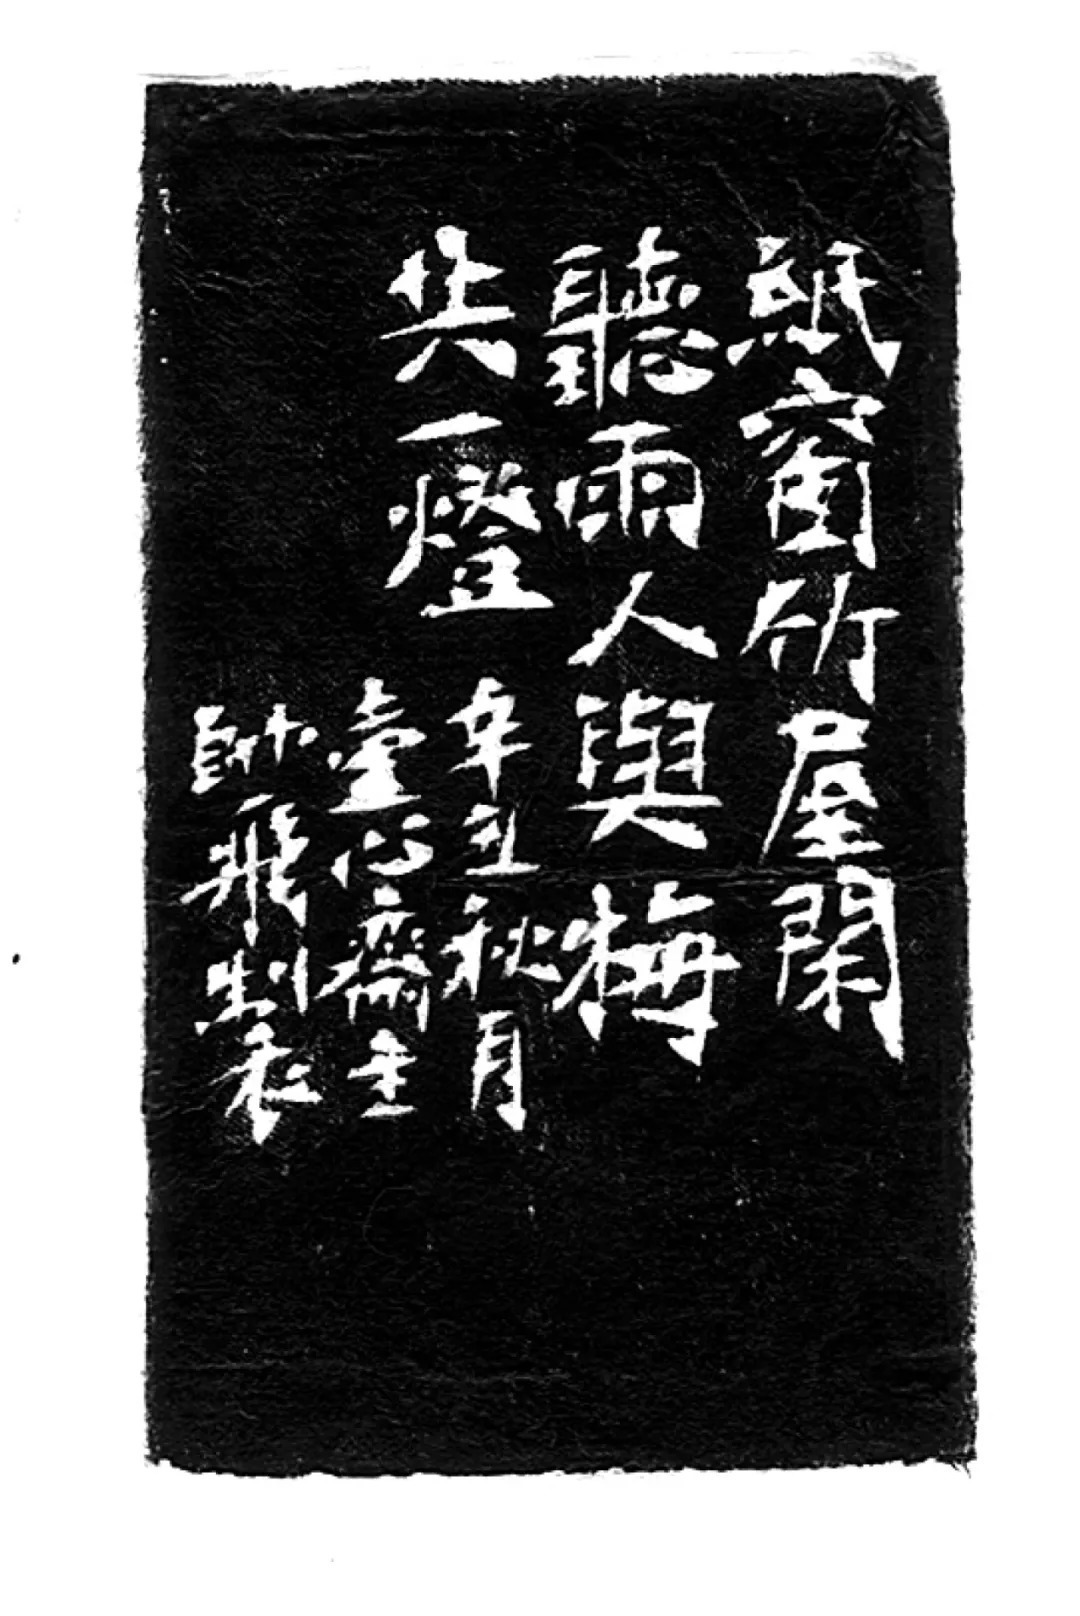 紙窗竹屋閑
聽雨人與梅
共一燈
辛丑秋月
壺心齋主
帥飛製